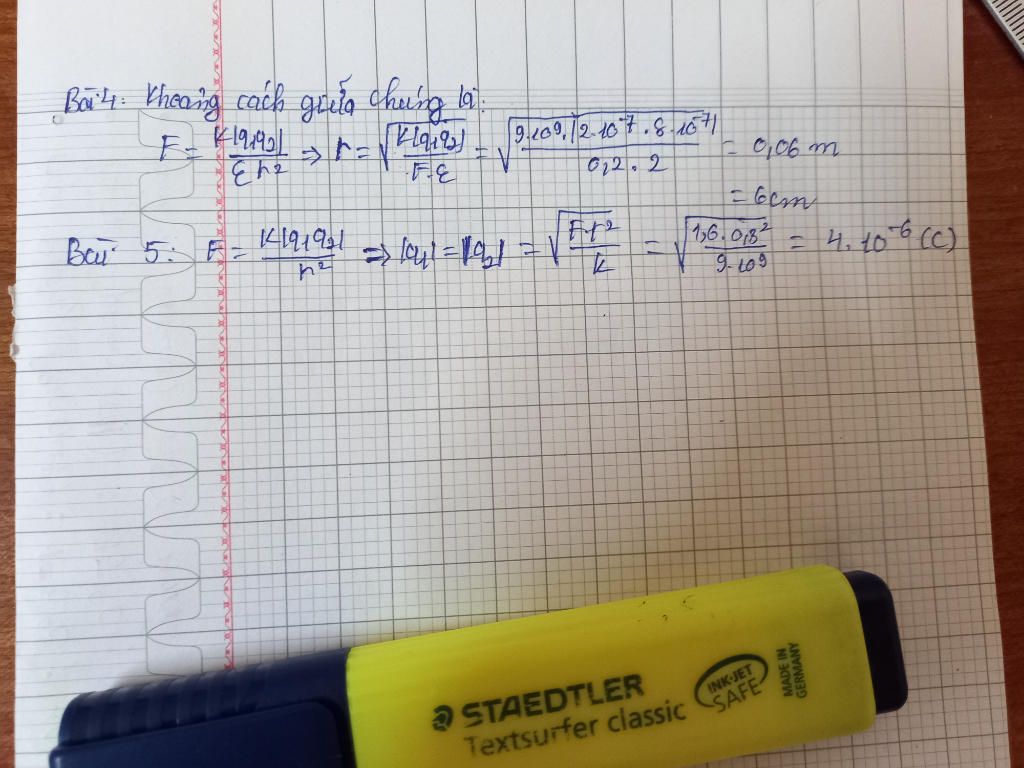 Bài 4: Khoảng cách giữa chúng là:
F = K|q₁q₂| / εr² => r = √(K|q₁q₂| / F.ε) = √(9.10⁹.|2.10⁻⁷.8.10⁻⁷| / 0,2.2) = 0,06 m
= 6cm
Bài 5: F = K|q₁q₂| / r² => |q₁| = |q₂| = √(F.r² / k) = √(1,6.0,3² / 9.10⁹) = 4.10⁻⁶ (C)
STAEDTLER
Textsurfer classic
INK-JET
SAFE
MADE IN
GERMANY